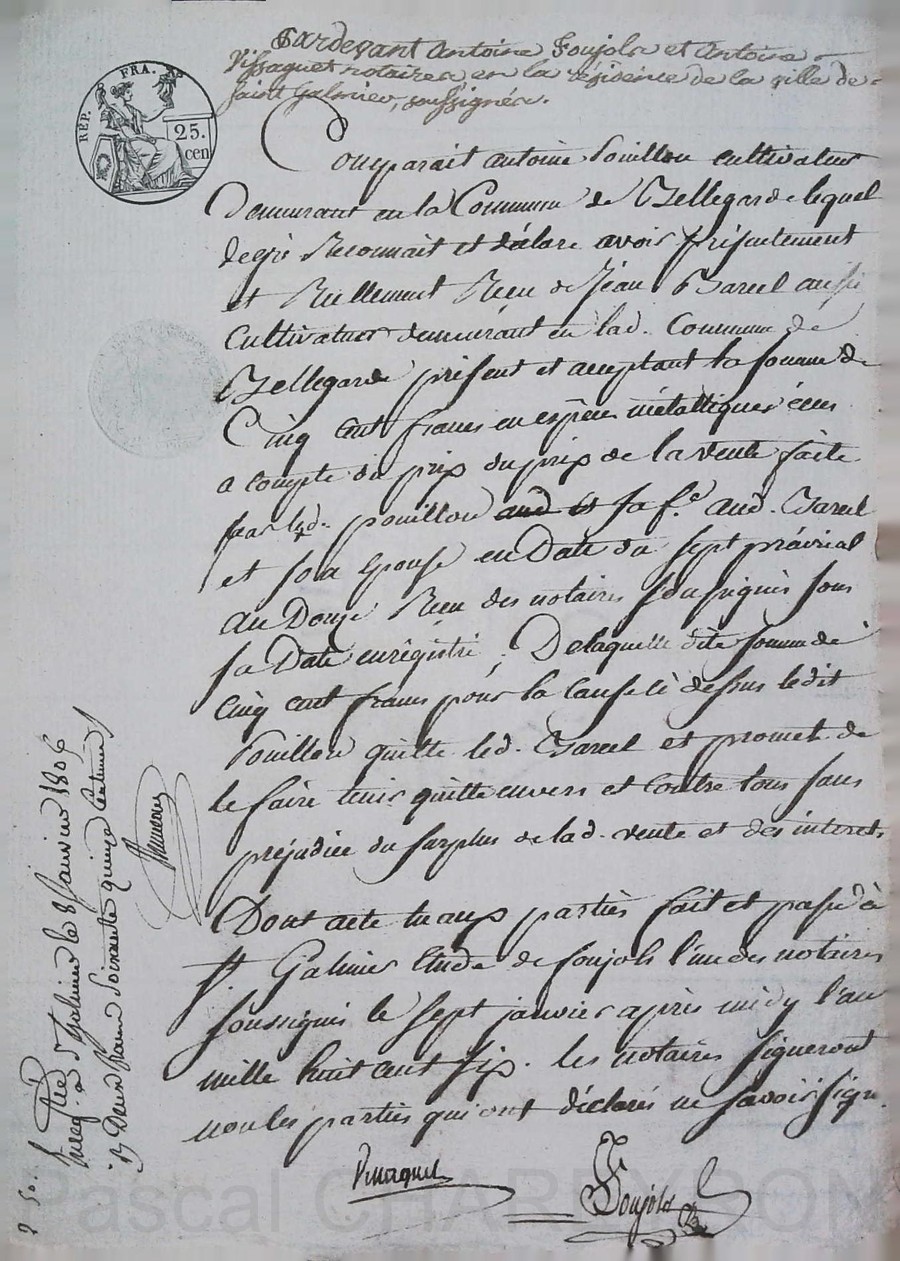 Pardevant Antoine Soujols et Antoine
Vissaguet notaires en la résidence de la ville de
Saint Galmier, soussignés.
REP. FRA.
25.
cen
Comparait antoine Pouillon cultivateur
Demeurant en la Commune de Bellegarde lequel
de gré Reconnait et déclare avoir présentement
et Réellement Reçu de Jéan Barcel aussi
Cultivateur demeurant en lad. Commune de
Bellegarde présent et acceptant la somme de
Cinq cent francs en espèces métalliques écus
a compte du prix du prix de la vente faite
par led. pouillon aud et sa fe. aud. Barcel
et son Epouse en Date du sept prairial
an Douze Reçu des notaires soussignés sous
sa Date enrégistré. De laquelle dite somme de
cinq cent francs pour la Cause ci dessus ledit
Pouillon quitte led. Barcel et promet de
le faire tenir quitte envers et contre tous sans
préjudice du surplus de lad. vente et des interets.
Dont acte aux parties fait et passé à
St. Galmier Etude de soujols l'un des notaires
soussignés le sept janvier après midy l'an
mille huit cent six. les notaires signeront
non les parties qui ont déclarés ne savoir sign.
Vissaguet
Soujols
Enreg. a St. Galmier le 8 Janvier 1806
Deux francs Soixante quinze Centimes
2 50.
Pascal CHAREYRON